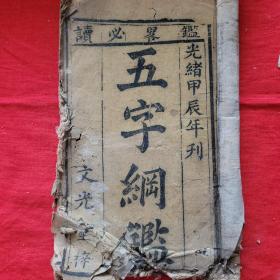 鑑畧必讀
光緒甲辰年刊
五字綱鑑
文光堂梓